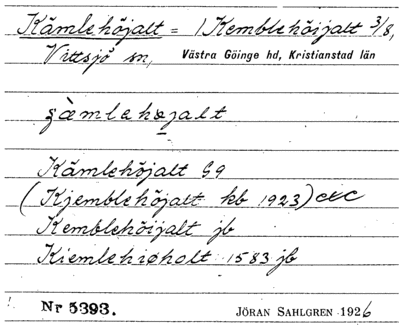 Kämlehöjalt = 1 Kemblehöijalt 3/8,
Vittsjö sn, Västra Göinge hd, Kristianstad län
Kämlehöjalt G9
(Kjemblehöjalt kb 1923) etc
Kemblehöijalt jb
Kiemlehiøholt 1583 jb
Nr 5393. JÖRAN SAHLGREN 1926